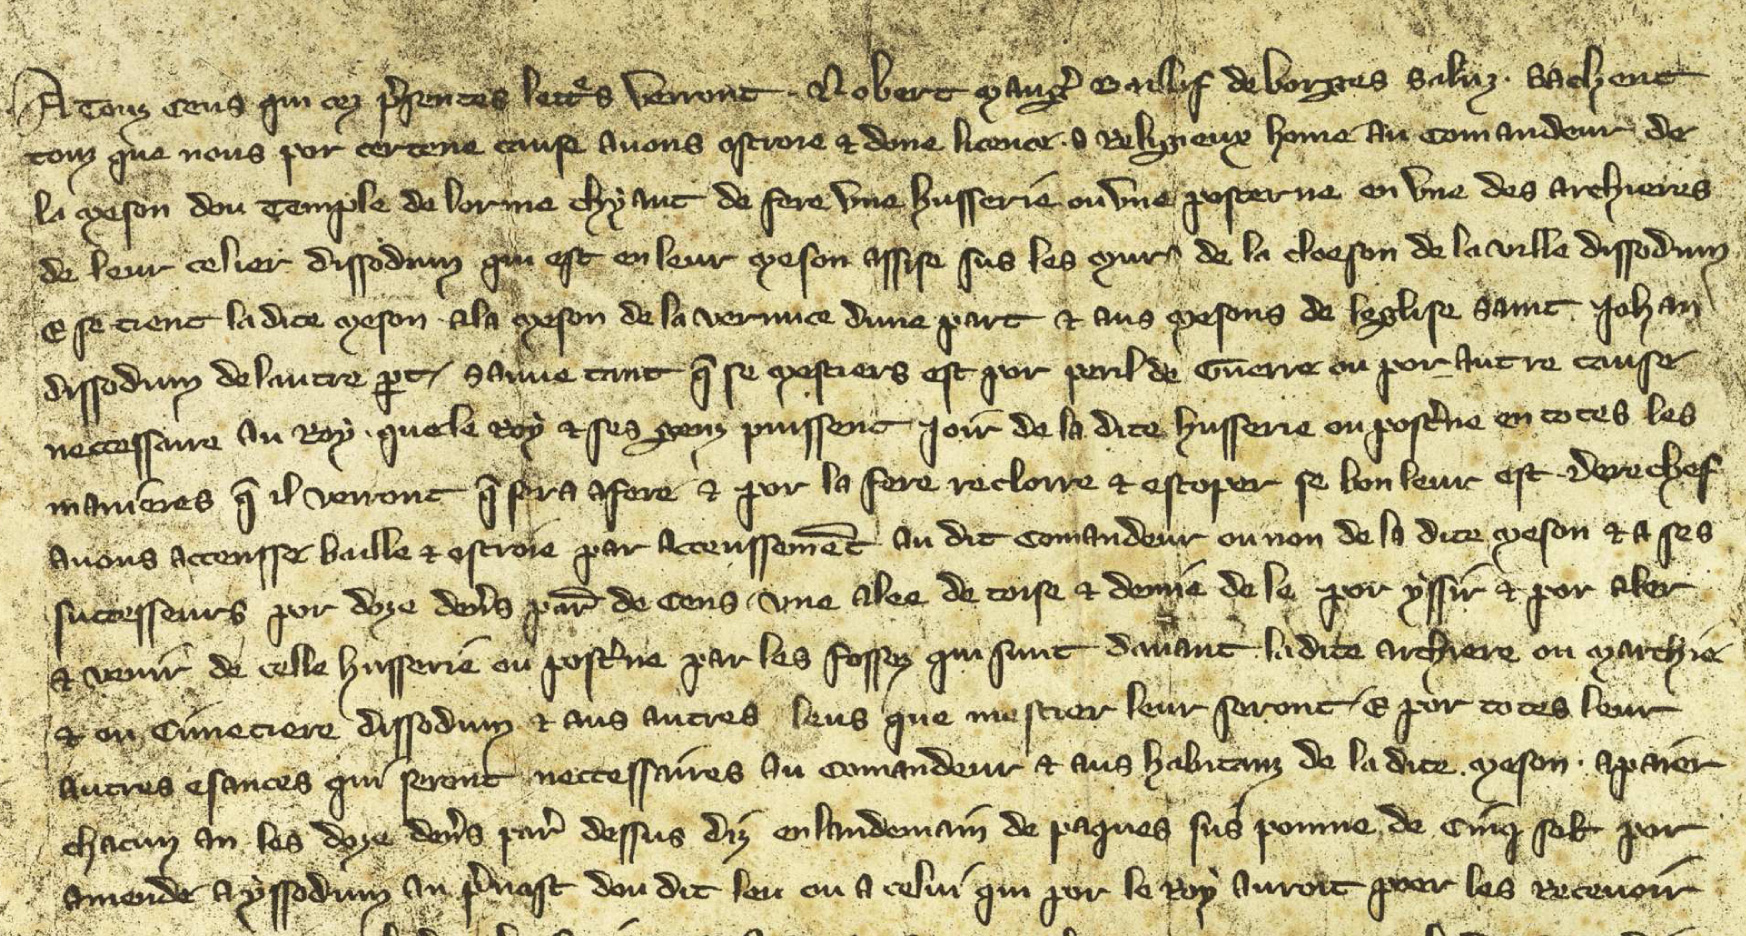 A touz ceus qui cez p̃sentes lettr̃s verront . Robert Maug̃ Baillif de borges saluz . sachent
touz que nous por certene cause auons ostroie & done licence . a Religieux home au Comandeur de
la meson dou Temple de lorme thyaut de fere vne husserie ou vne posterne en vne des archieres
de leur celier dissodum qui est en leur meson assise sus les murs de la cloeson de la ville dissodum
E se tient ladite meson a la meson de la vernuce dune part & aus mesons de leglise saint Johan
dissodum de lautre p̱t / sauue tant q̃ se mestiers est por peril de Guerre ou por autre cause
neccessaire au Roy . que le Roy & ses genz puissent Joir de la dite husserie ou post̃ne en totes les
manieres q̃ il verront q̃ sera afere & por la fere reclorre & estoper se bon leur est . derechef
auons accensse baille & ostroie par accenssemẽt au dit Comandeur ou non de la dite meson & a ses
successeurs por doze den̾s par̾ de cens . vne alee de toise & demie de le por yssir & por aler
& venir de celle husserie ou post̃ne par les fossez qui sunt dauant ladite archiere ou marchie
& ou Cimetiere dissodum & aus autres leus que mestier leur seront / E por totes leur
autres esances qui seront neccessaires au Comandeur & aus habitanz de ladite meson . apaier
chacun an les doze den̾s par̾ dessus diz en landemain de paques sus poinne de Cinq solz por
amende a yssodum au p̃uost dou dit leu ou a celui qui por le Roy auroit poer les Receuoir